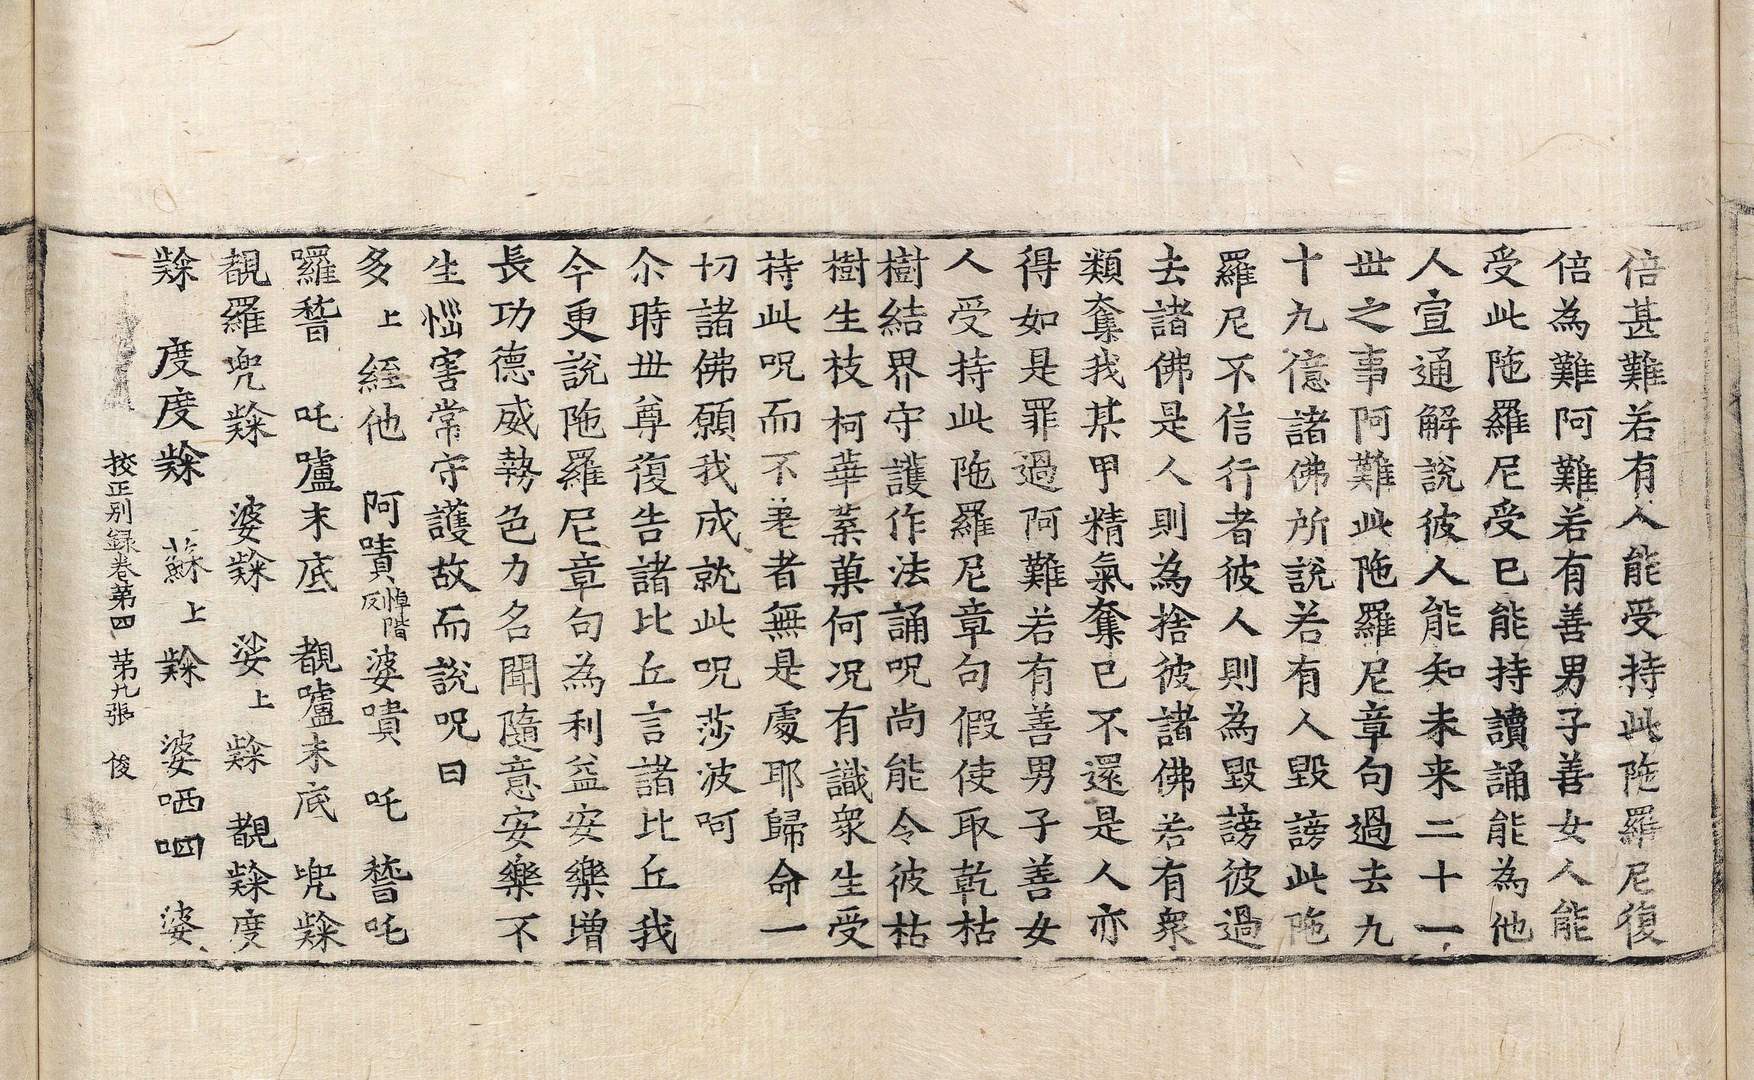 倍甚難若有人能受持此陁羅尼復
倍為難阿難若有善男子善女人能
受此陁羅尼受已能持讀誦能為他
人宣通解說彼人能知未来二十一
丗之事阿難此陁羅尼章句過去九
十九億諸佛所說若有人毀謗此陁
羅尼不信行者彼人則為毀謗彼過
去諸佛是人則為捨彼諸佛若有衆
類奪我某甲精氣奪已不還是人亦
得如是罪過阿難若有善男子善女
人受持此陁羅尼章句假使取乾枯
樹結界守護作法誦呪尚能令彼枯
樹生枝柯華葉菓何况有識衆生受
持此呪而不差者無是處耶歸命一
切諸佛願我成就此呪莎波呵
尒時丗尊復告諸比丘言諸比丘我
今更說陁羅尼章句為利益安樂增
長功德威勢色力名聞隨意安樂不
生惱害常守護故而說呪曰
多上 絰他 阿嘖悼階反 婆嘳 吒 𥡴吒
囉𥡴 吒嚧末底 覩嚧末底 兜𪐴
覩羅兜𪐴 婆𪐴 娑上 𪐴 覩𪐴度
𪐴 度度𪐴 蘇上𪐴 婆哂呬 婆
挍正別録卷第四 苐九張 俊